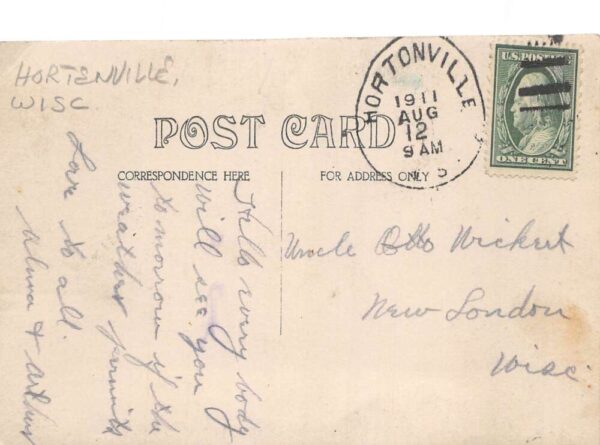 HORTENVILLE,
WISC
POST CARD
CORRESPONDENCE HERE
FOR ADDRESS ONLY
HORTONVILLE
1911
AUG
12
9 AM
U.S. POSTAGE
ONE CENT
Hello every body
will see you
tomorrow if the
weather permits
Love to all.
Alma & Arthur
Uncle Otto Wickert
New London
Wisc.